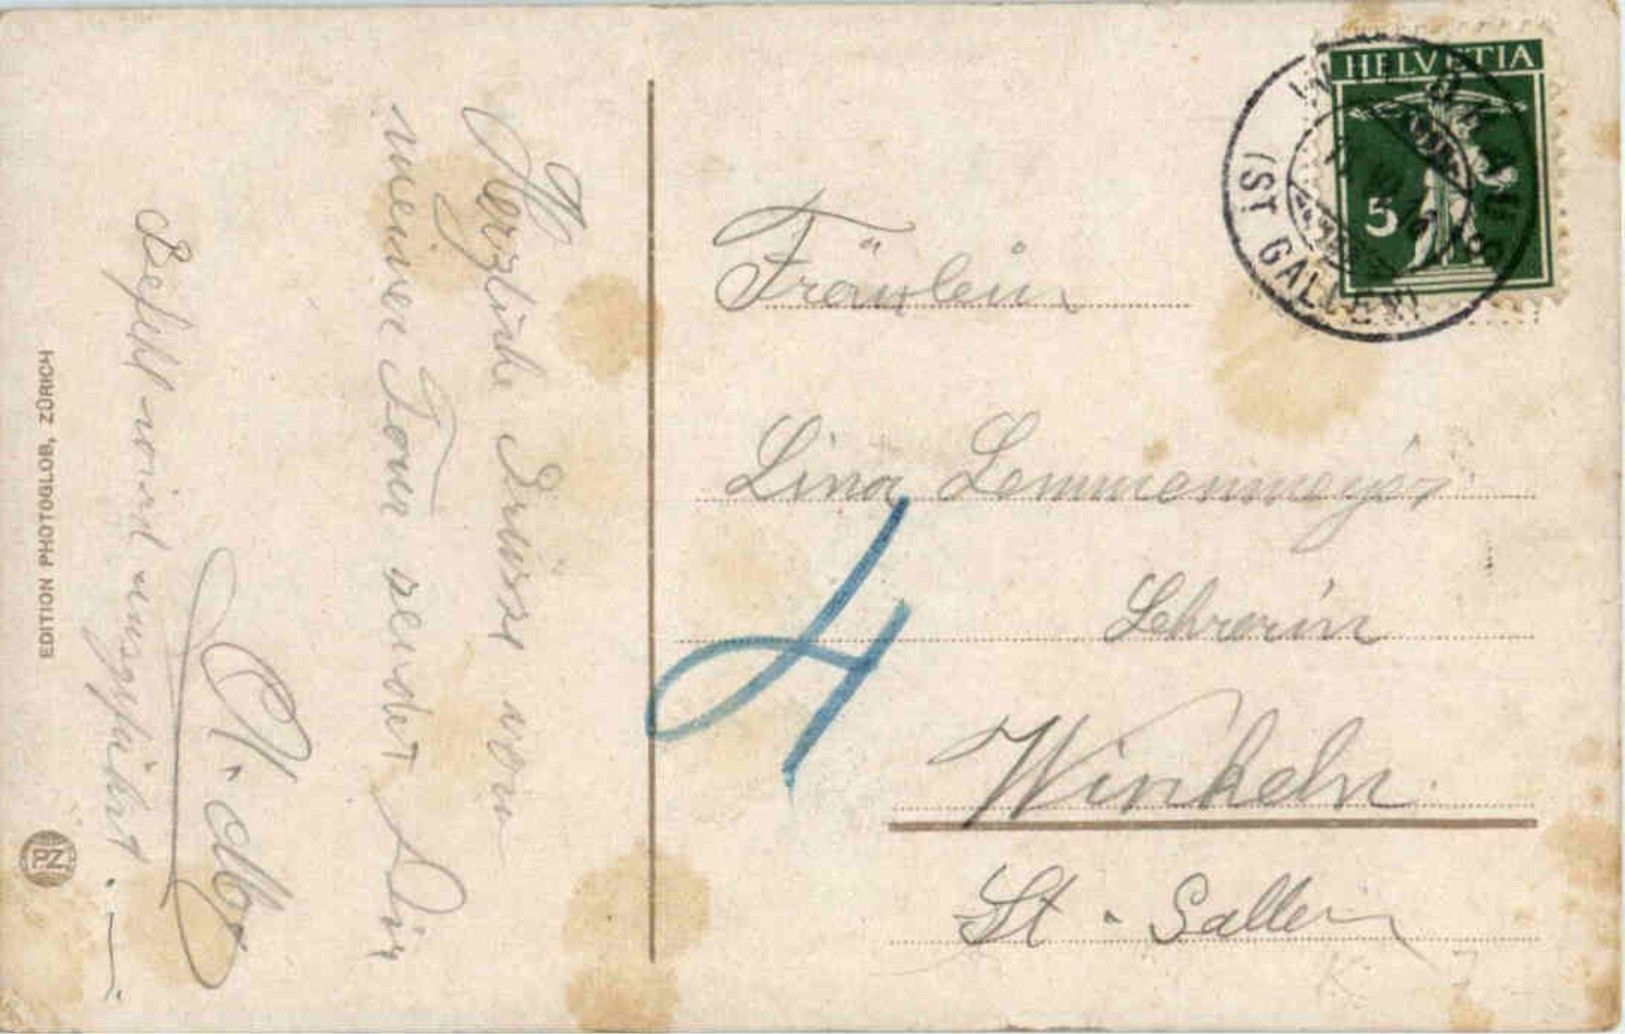 Herzliche Grüsse von
meiner Tour sendet Dir
Befehl wird ausgeführt
EDITION PHOTOGLOB, ZÜRICH
PZ
HELVETIA
5
(ST. GALLEN)
Fräulein
Lina Lemmenmeyer
Lehrerin
Winkeln
St. Gallen
4